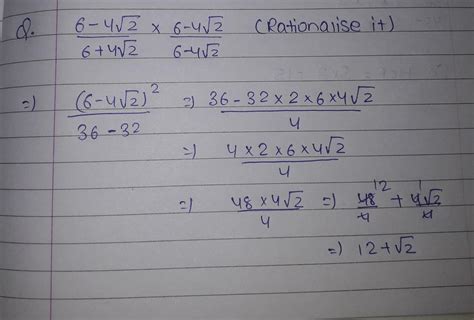 Q. 6-4√2 / 6+4√2 × 6-4√2 / 6-4√2 (Rationalise it)
=) (6-4√2)² / 36-32 =) 36-32×2×6×4√2 / 4
=) 4×2×6×4√2 / 4
=) 48×4√2 / 4 =) 48 12 / 4 + 4 1 √2 / 4
=) 12+√2